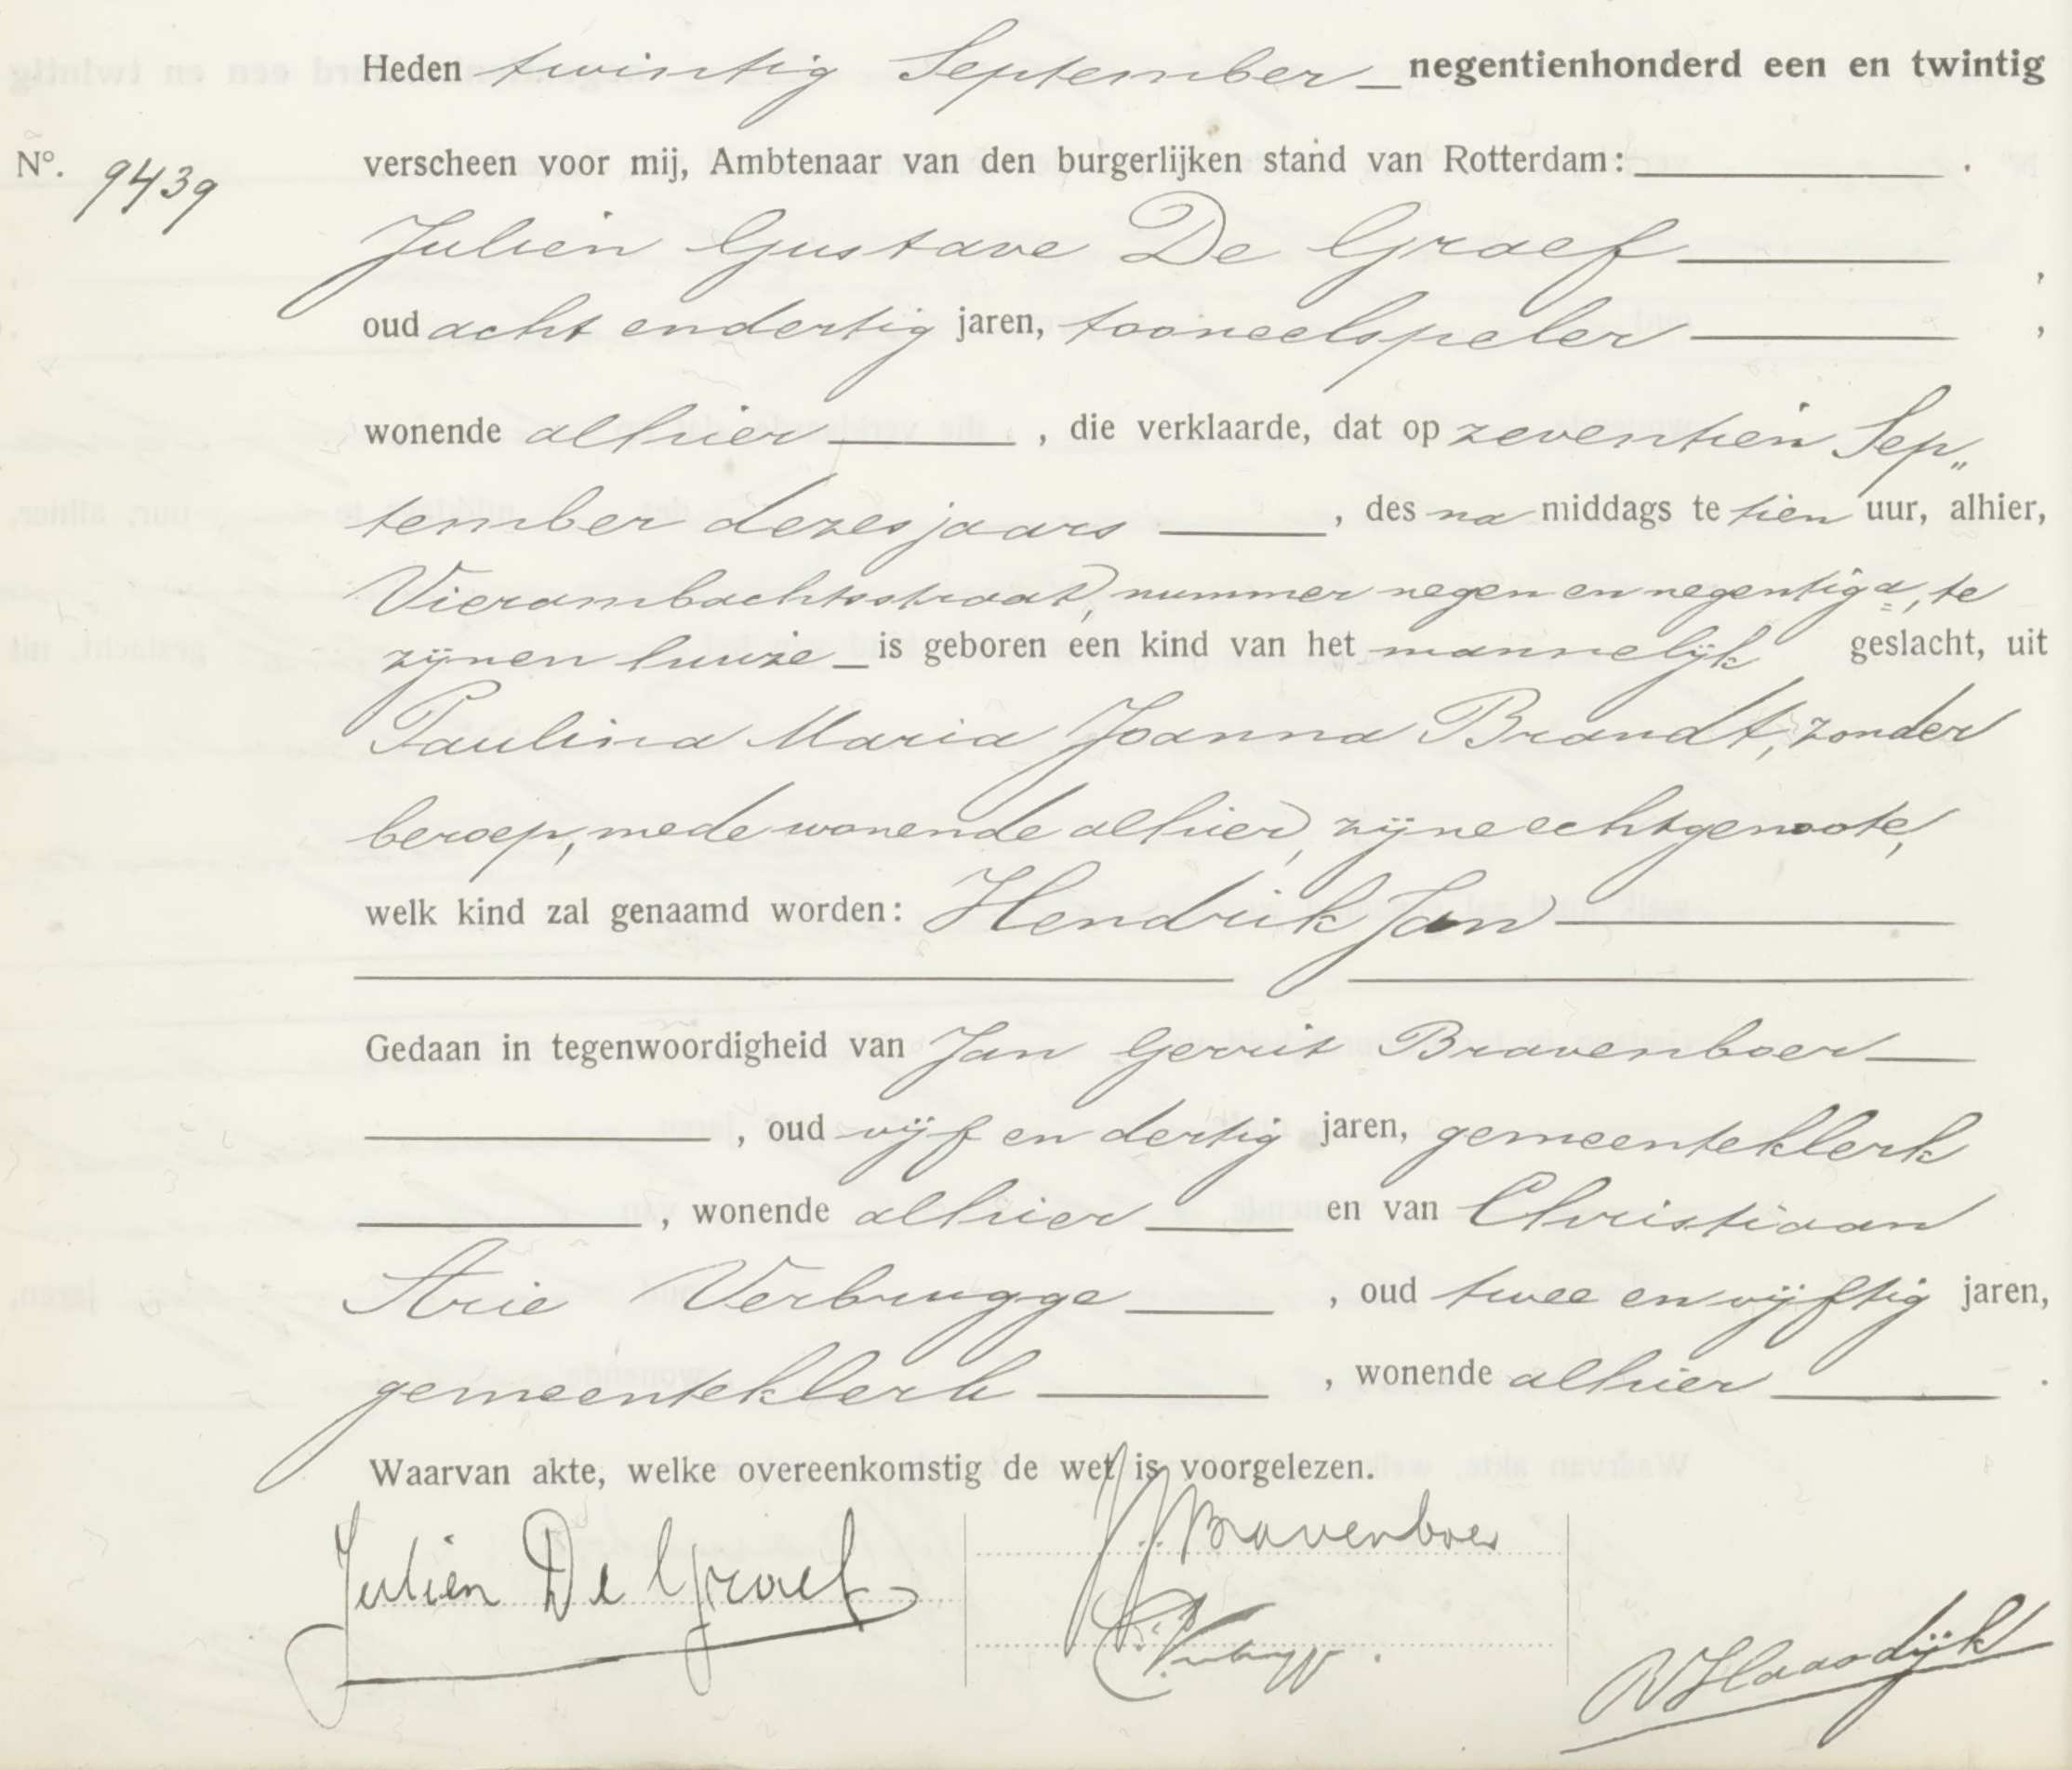 Heden twintig September negentienhonderd een en twintig
N°. 9439
verscheen voor mij, Ambtenaar van den burgerlijken stand van Rotterdam: .
Julien Gustave De Graef ,
oud acht en dertig jaren, tooneelspeler ,
wonende alhier , die verklaarde, dat op zeventien Sep„
tember dezes jaars , des na middags te tien uur, alhier,
Vierambachtsstraat, nummer negen en negentig a, te
zijnen huize is geboren een kind van het mannelijk geslacht, uit
Paulina Maria Joanna Brandt, zonder
beroep, mede wonende alhier, zijne echtgenoote,
welk kind zal genaamd worden: Hendrik Jan
Gedaan in tegenwoordigheid van Jan Gerrit Bravenboer
, oud vijf en dertig jaren, gemeenteklerk
, wonende alhier en van Christiaan
Arie Verbrugge , oud twee en vijftig jaren,
gemeenteklerk , wonende alhier .
Waarvan akte, welke overeenkomstig de wet is voorgelezen.
Julien De Graef
Bravenboer
Verbrugge.